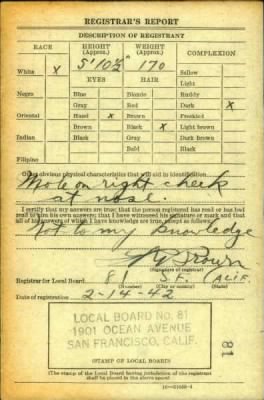 REGISTRAR'S REPORT
DESCRIPTION OF REGISTRANT
RACE HEIGHT (Approx.) WEIGHT (Approx.) COMPLEXION
5' 10½" 170
White X Sallow
EYES HAIR Light
Negro Blue Blonde Ruddy
Gray Red Dark X
Oriental Hazel X Brown Freckled
Brown Black X Light brown
Indian Black Gray Dark brown
Bald Black
Filipino
Other obvious physical characteristics that will aid in identification
Mole on right cheek
at nose.
I certify that my answers are true; that the person registered has read or has had
read to him his own answers; that I have witnessed his signature or mark and that
all of his answers of which I have knowledge are true, except as follows:
Not to my knowledge
Brown
(Signature of registrar)
Registrar for Local Board 81 S.F. CALIF.
(Number) (City or county) (State)
Date of registration 2-14-42
LOCAL BOARD NO. 81
1901 OCEAN AVENUE
SAN FRANCISCO, CALIF.
81
(STAMP OF LOCAL BOARD)
(The stamp of the Local Board having jurisdiction of the registrant
shall be placed in the above space)